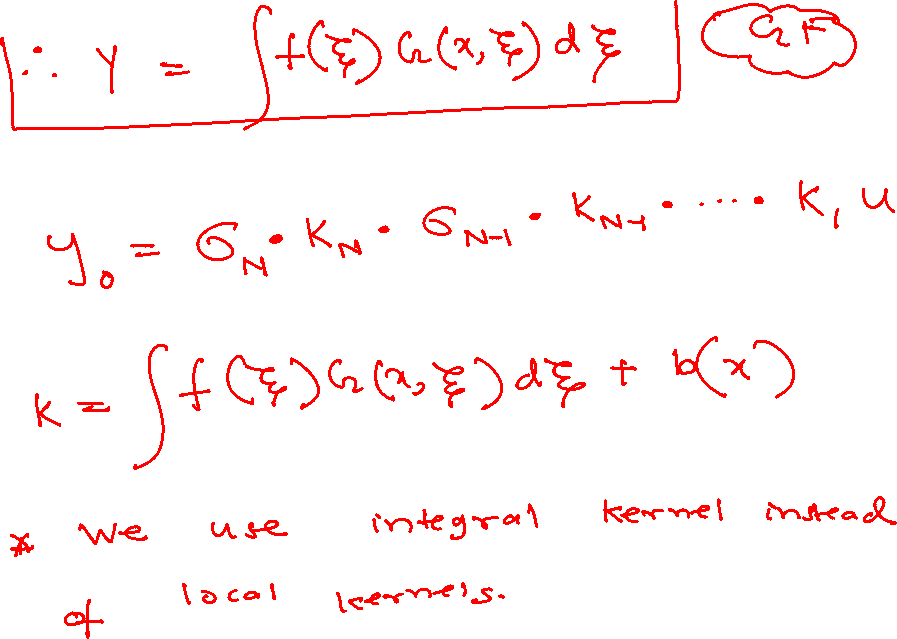 ∴ Y = ∫ f(ξ) G(x, ξ) dξ GF
y₀ = σ_N • K_N • σ_{N-1} • K_{N-1} • .... • K₁ u
K = ∫ f(ξ) G(x, ξ) dξ + b(x)
* We use integral kernel instead
of local kernels.